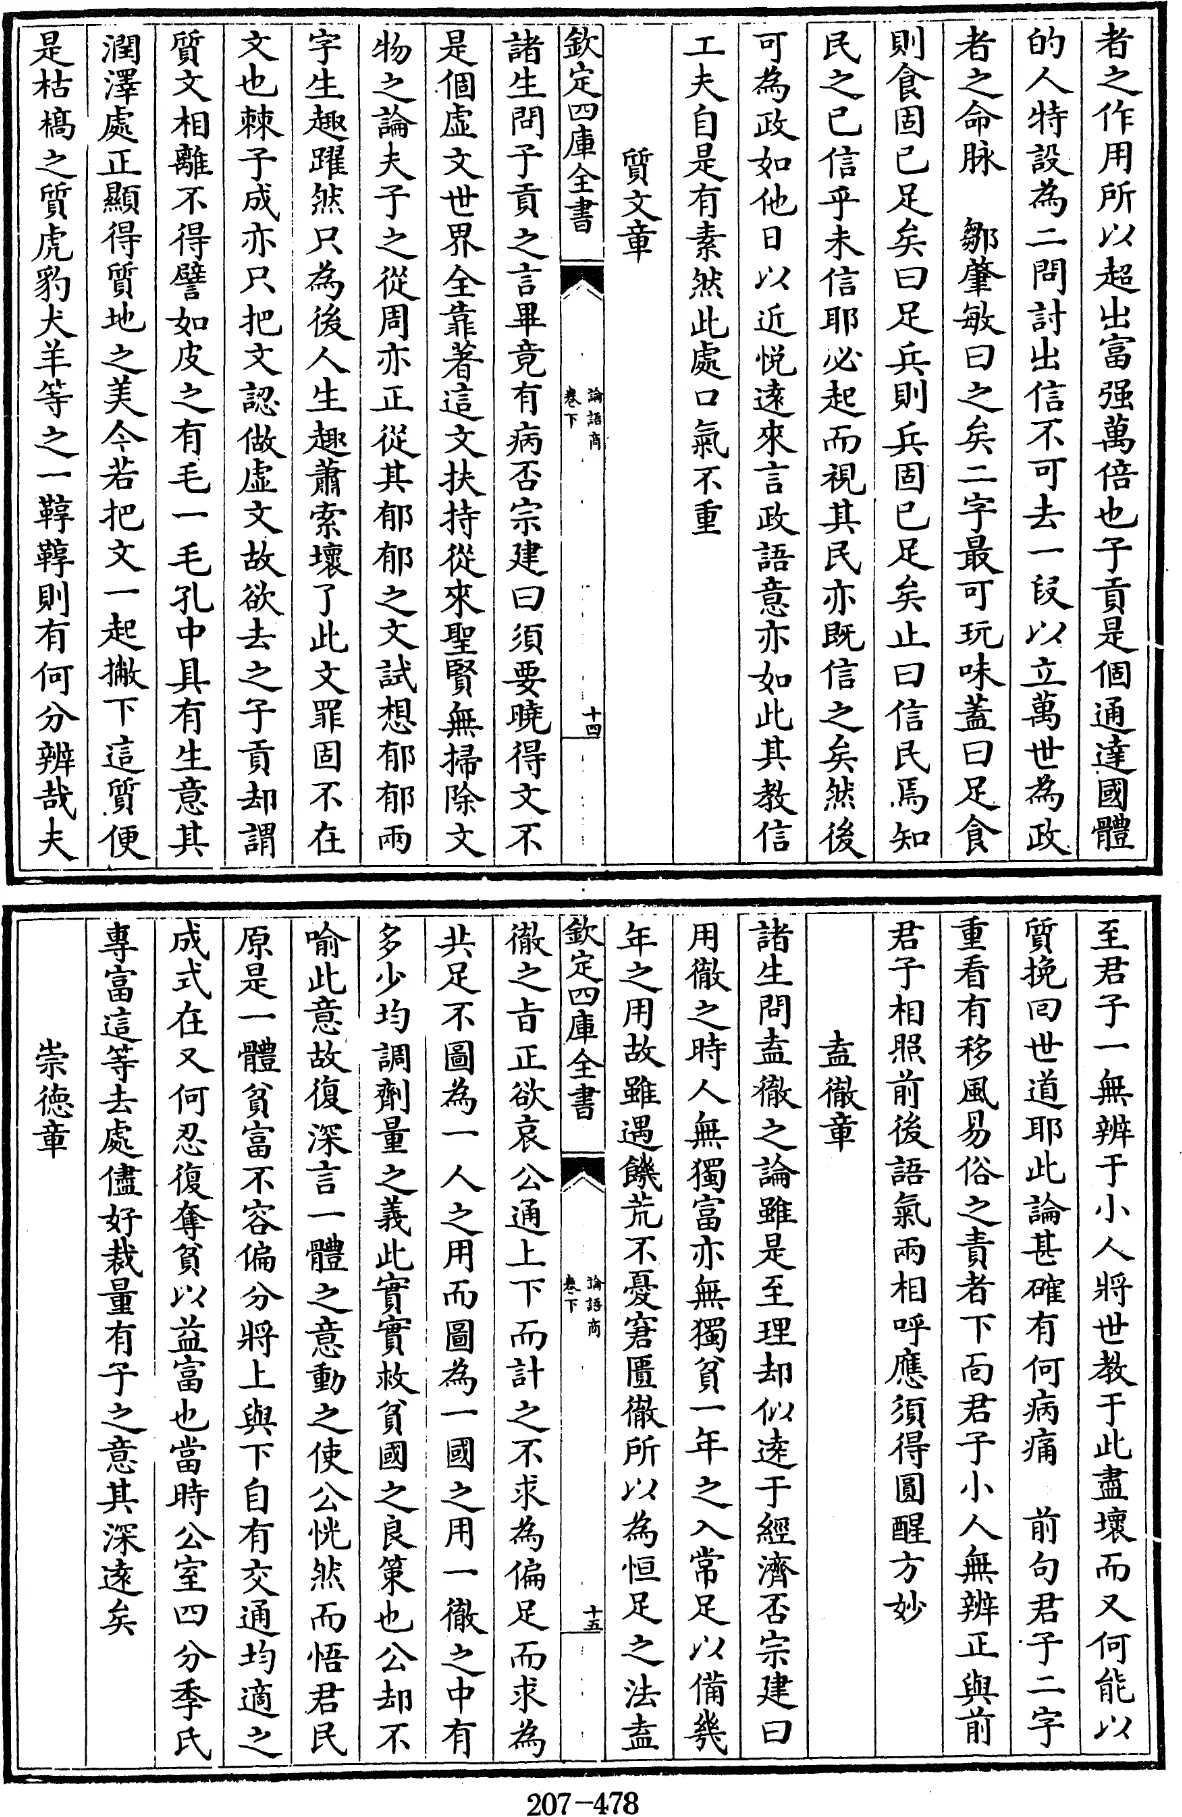 者之作用所以超出富强萬倍也子貢是個通達國體
的人特設為二問討出信不可去一段以立萬世為政
者之命脉　鄒肇敏曰之矣二字最可玩味蓋曰足食
則食固已足矣曰足兵則兵固已足矣止曰信民焉知
民之已信乎未信耶必起而視其民亦既信之矣然後
可為政如他日以近悦逺來言政語意亦如此其教信
工夫自是有素然此處口氣不重
質文章
欽定四庫全書
論語商
卷下
十四
諸生問子貢之言畢竟有病否宗建曰須要曉得文不
是個虚文世界全靠著這文扶持從來聖賢無掃除文
物之論夫子之從周亦正從其郁郁之文試想郁郁兩
字生趣躍然只為後人生趣蕭索壞了此文罪固不在
文也棘子成亦只把文認做虚文故欲去之子貢却謂
質文相離不得譬如皮之有毛一毛孔中具有生意其
潤澤處正顯得質地之美今若把文一起撇下這質便
是枯槁之質虎豹犬羊等之一鞟鞟則有何分辨哉夫
至君子一無辨于小人將世教于此盡壞而又何能以
質挽回世道耶此論甚確有何病痛　前句君子二字
重看有移風易俗之責者下面君子小人無辨正與前
君子相照前後語氣兩相呼應須得圓醒方妙
盍徹章
諸生問盍徹之論雖是至理却似逺于經濟否宗建曰
用徹之時人無獨富亦無獨貧一年之入常足以備幾
年之用故雖遇饑荒不憂窘匱徹所以為恒足之法盍
欽定四庫全書
論語商
卷下
十五
徹之旨正欲哀公通上下而計之不求為偏足而求為
共足不圖為一人之用而圖為一國之用一徹之中有
多少均調劑量之義此實實救貧國之良策也公却不
喻此意故復深言一體之意動之使公恍然而悟君民
原是一體貧富不容偏分將上與下自有交通均適之
成式在又何忍復奪貧以益富也當時公室四分季氏
專富這等去處儘好裁量有子之意其深逺矣
崇徳章
207-478